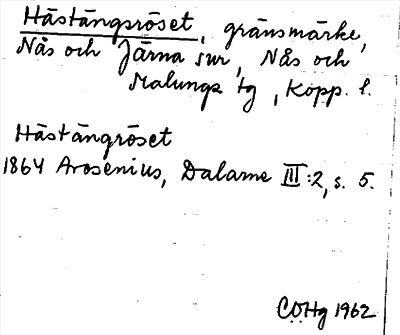 Hästängsröset, gränsmärke,
Nås och Järna snr, Nås och
Malungs tg, Kopp. l.
Hästängröset
1864 Arosenius, Dalarne III:2, s. 5.
COHg 1962